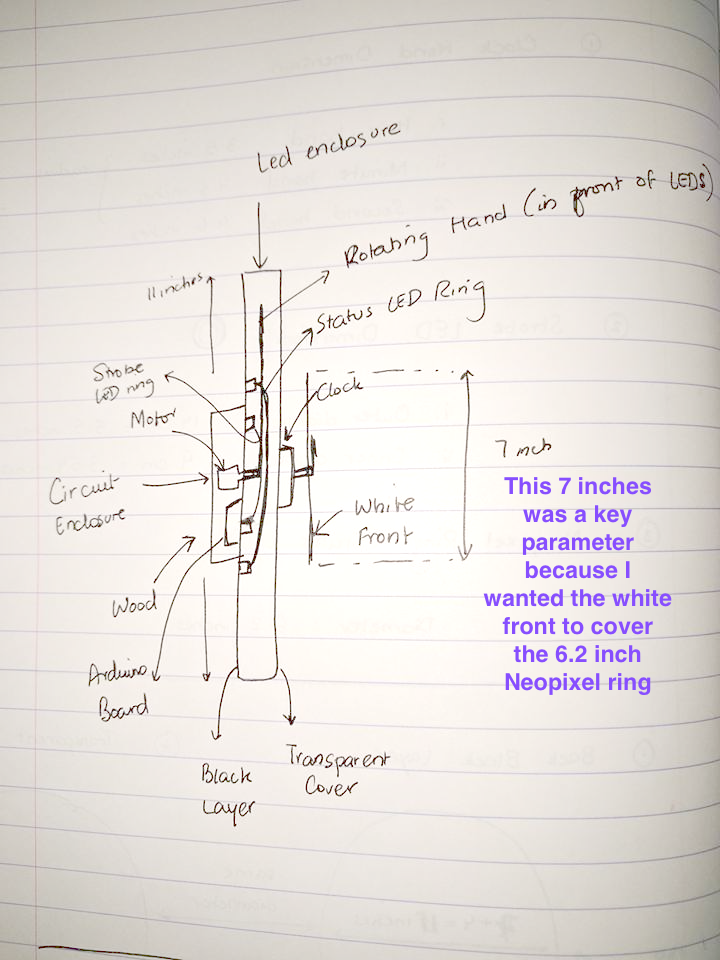 Led enclosure
Rotating Hand (in front of LEDS)
11 inches
Status LED Ring
Strobe
LED ring
Clock
Motor
7 inch
Circuit
Enclosure
White
Front
This 7 inches
was a key
parameter
because I
wanted the white
front to cover
the 6.2 inch
Neopixel ring
Wood
Arduino
Board
Transparent
Cover
Black
Layer